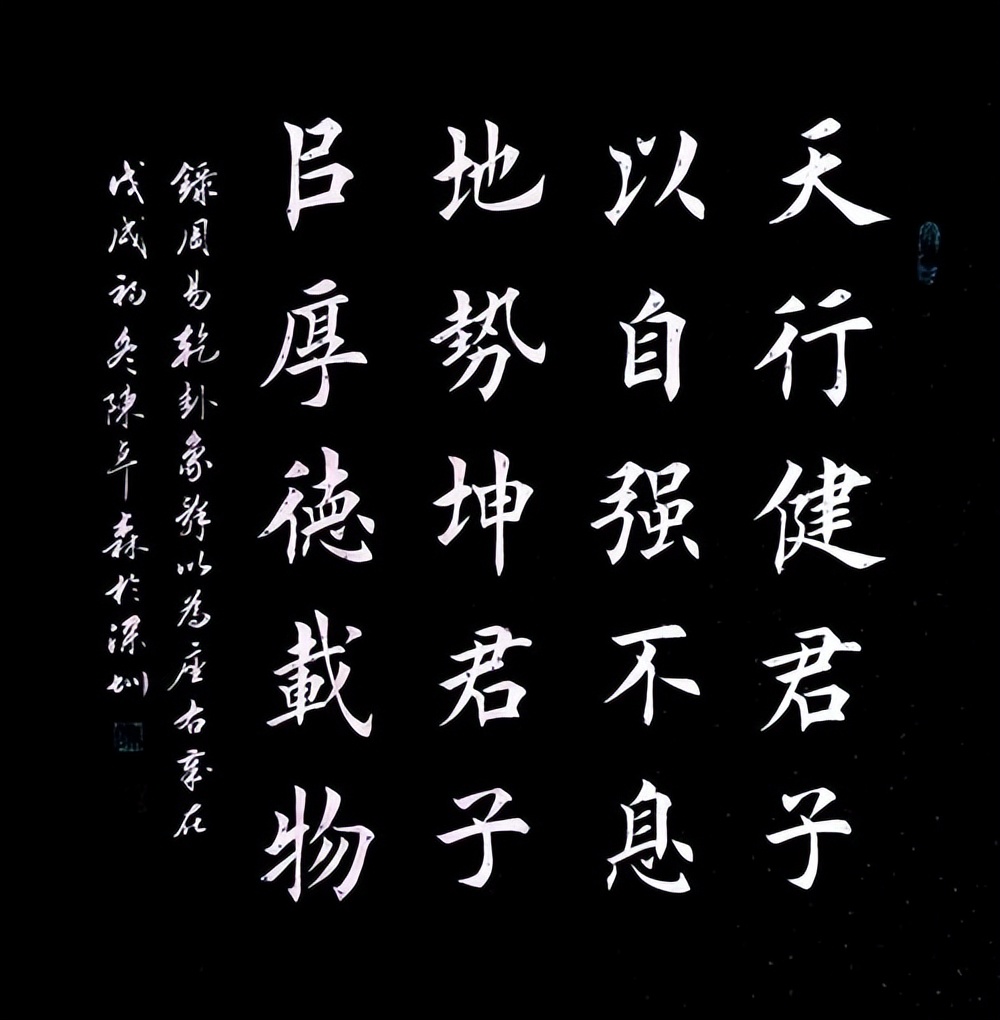 天行健君子
以自强不息
地势坤君子
㠯厚德載物
錄周易乾卦象辭以為座右
戊戌初冬陳卓森於深圳